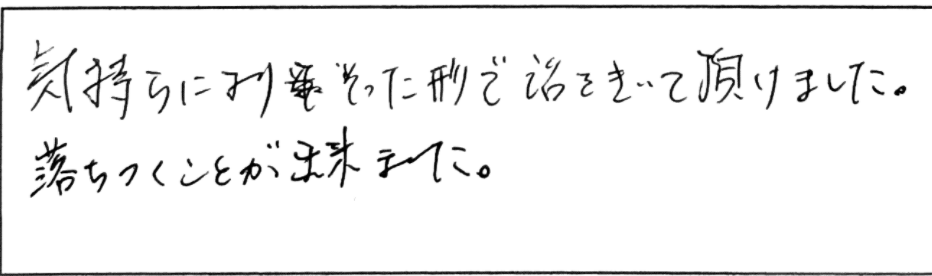 気持ちに寄りそった形で話をきいて頂けました。
落ちつくことが出来ました。